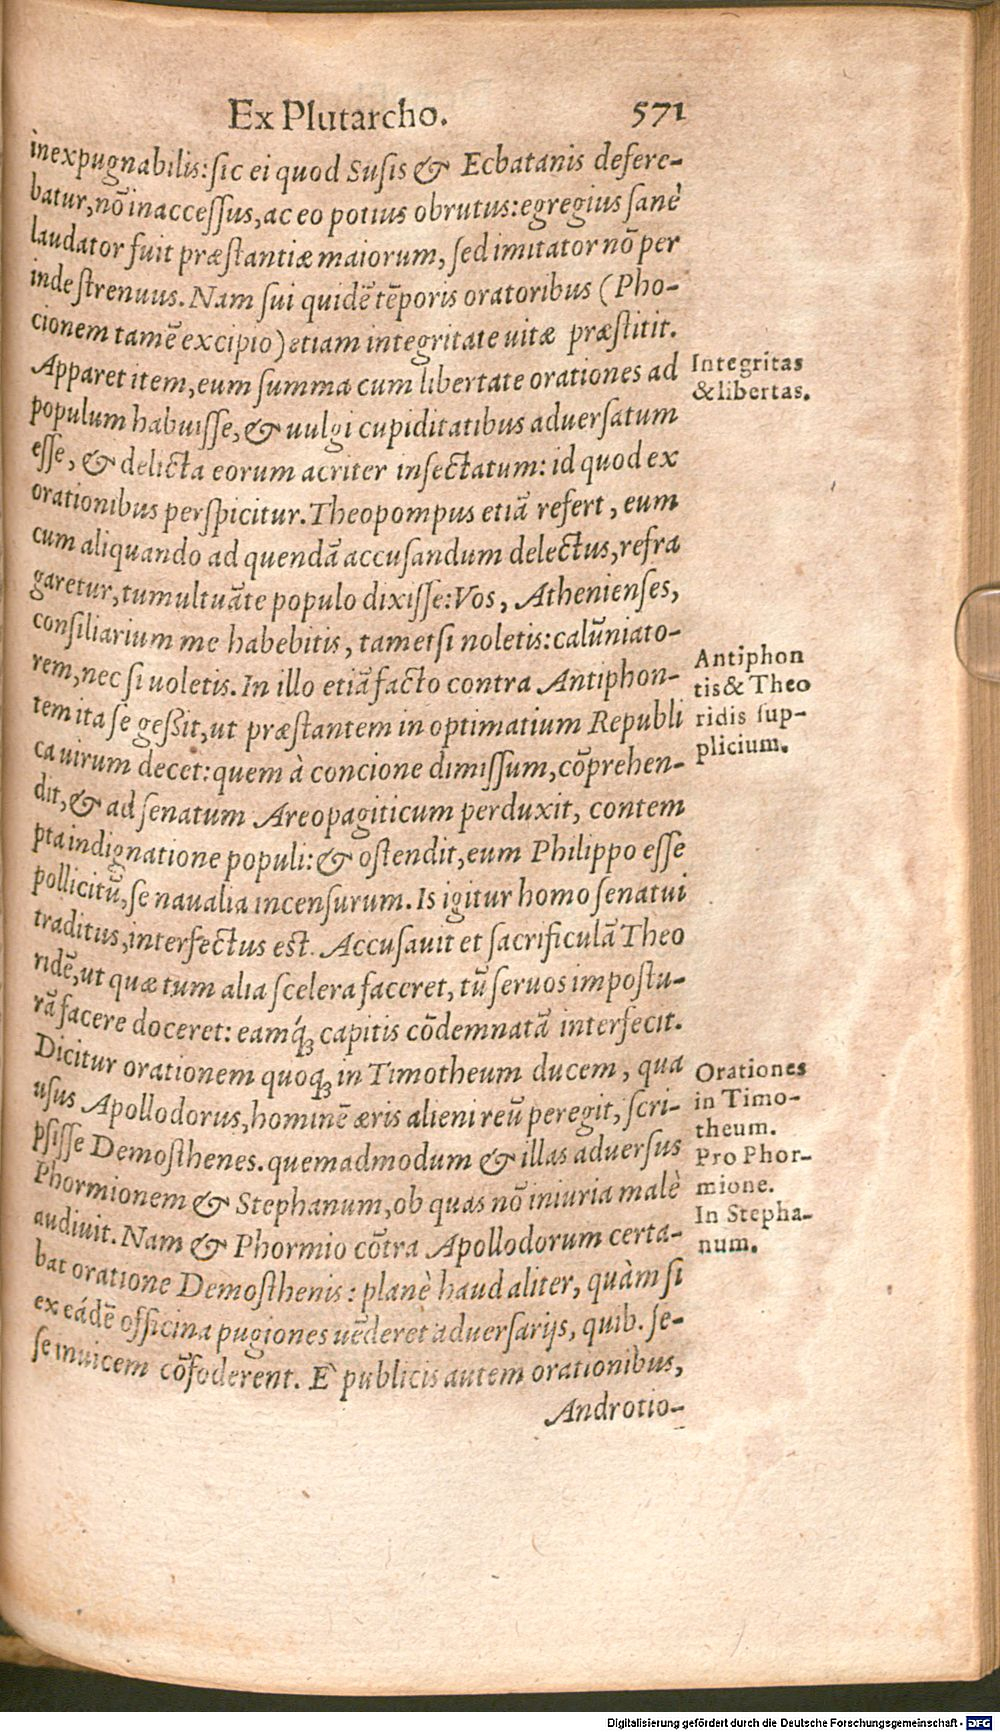 Ex Plutarcho. 571
inexpugnabilis: sic ei quod Susis & Ecbatanis defere-
batur, nō inaccessus, ac eo potius obrutus: egregius sanè
laudator fuit præstantiæ maiorum, sed imitator nō per
inde strenuus. Nam sui quidē tēporis oratoribus (Pho-
cionem tamē excipio) etiam integritate uitæ præstitit.
Apparet item, eum summa cum libertate orationes ad
populum habuisse, & uulgi cupiditatibus aduersatum
esse, & delicta eorum acriter insectatum: id quod ex
orationibus perspicitur. Theopompus etiā refert, eum
cum aliquando ad quendā accusandum delectus, refra
garetur, tumultuāte populo dixisse: Vos, Athenienses,
consiliarium me habebitis, tametsi noletis: calūniato-
rem, nec si uoletis. In illo etiā facto contra Antiphon-
tem ita se geßit, ut præstantem in optimatium Republi
ca uirum decet: quem à concione dimissum, cōprehen-
dit, & ad senatum Areopagiticum perduxit, contem
pta indignatione populi: & ostendit, eum Philippo esse
pollicitū, se naualia incensurum. Is igitur homo senatui
traditus, interfectus est. Accusauit et sacrificulā Theo
ridē, ut quæ tum alia scelera faceret, tū seruos impostu-
rā facere doceret: eamq́ꝫ capitis cōdemnatā interfecit.
Dicitur orationem quoqꝫ in Timotheum ducem, qua
usus Apollodorus, hominē æris alieni reū peregit, scri-
psisse Demosthenes. quemadmodum & illas aduersus
Phormionem & Stephanum, ob quas nō iniuria malè
audiuit. Nam & Phormio cōtra Apollodorum certa-
bat oratione Demosthenis: planè haud aliter, quàm si
ex eádē officina pugiones uēderet aduersarijs, quib. se-
se inuicem cōfoderent. E` publicis autem orationibus,
Androtio-
Integritas
& libertas.
Antiphon
tis & Theo
ridis sup-
plicium.
Orationes
in Timo-
theum.
Pro Phor-
mione.
In Stepha-
num.
Digitalisierung gefördert durch die Deutsche Forschungsgemeinschaft - DFG